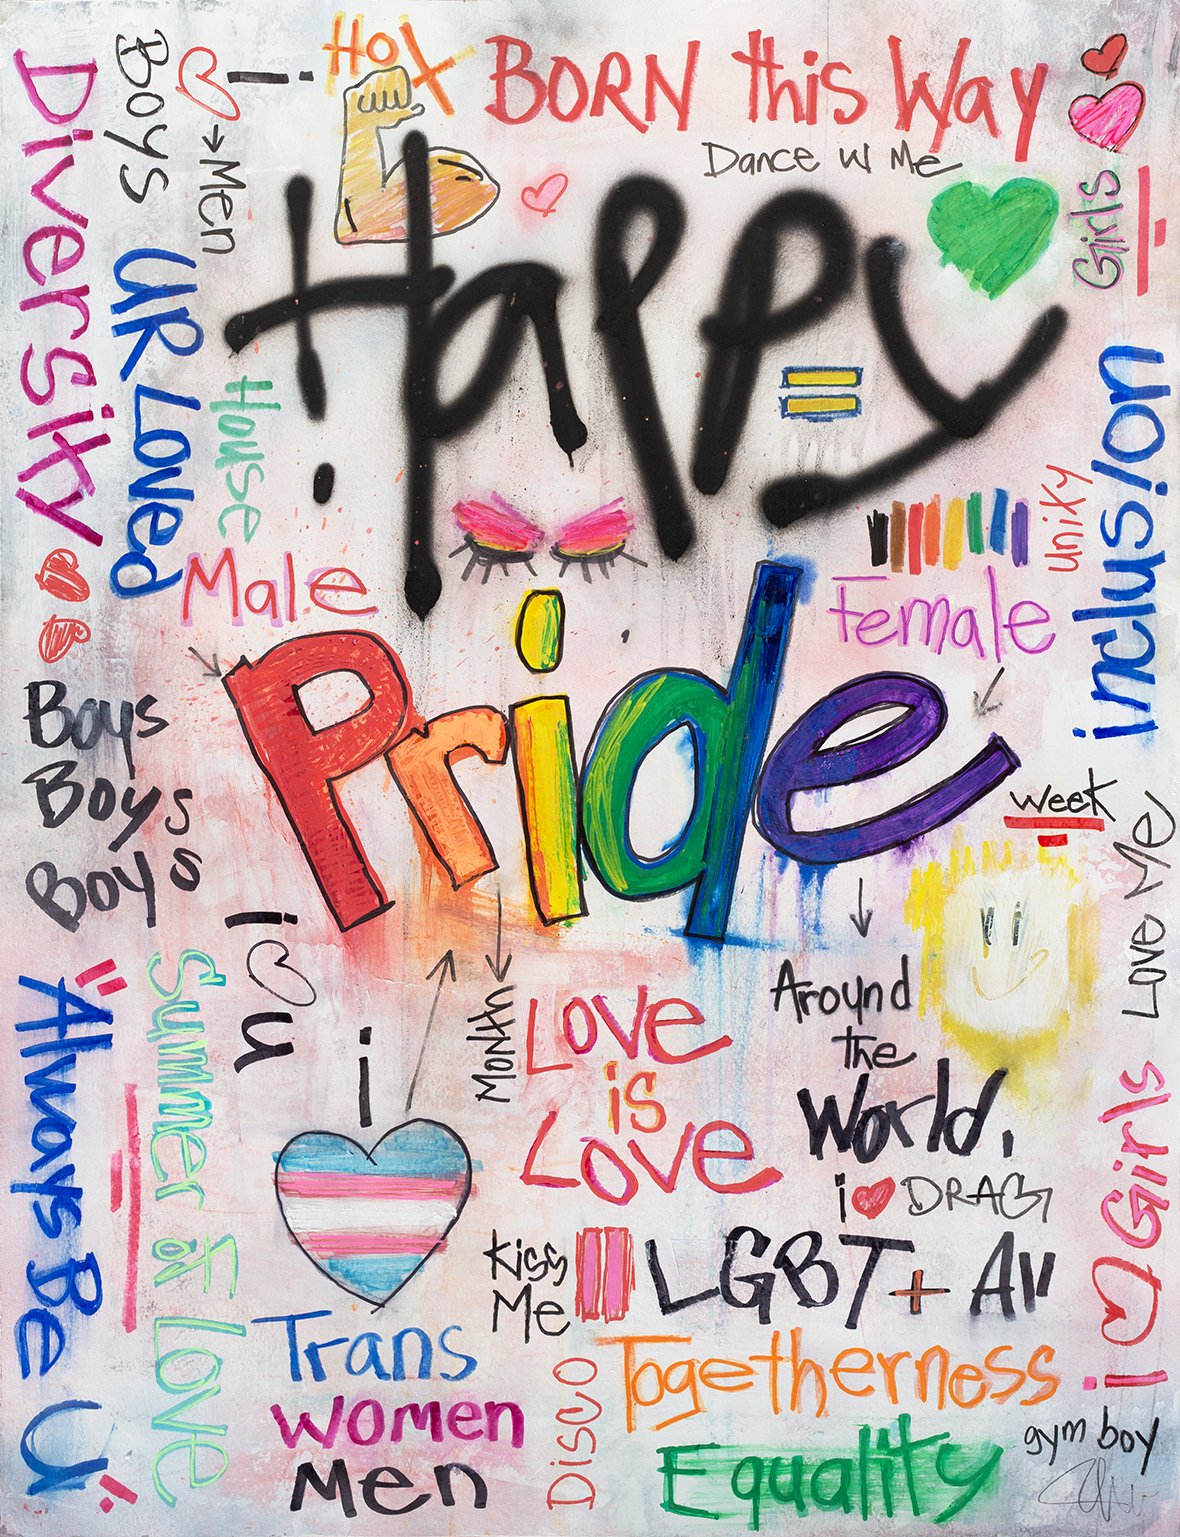 Hot
BORN this Way
Dance w Me
Happy
=
Girls
Diversity
Boys
i ♡ → Men
UR Loved
House
Male
Female
unity
inclusion
Pride
week
Month
Boys
Boys
Boys
i ♡ u
Love Me
Around
the
World.
Love
is
Love
i ♥ DRAG
"Always Be U"
Summer of Love
i
Kiss
Me
LGBT + All
i ♡ Girls
Trans
Women
Men
Disco
Togetherness
Equality
gym boy